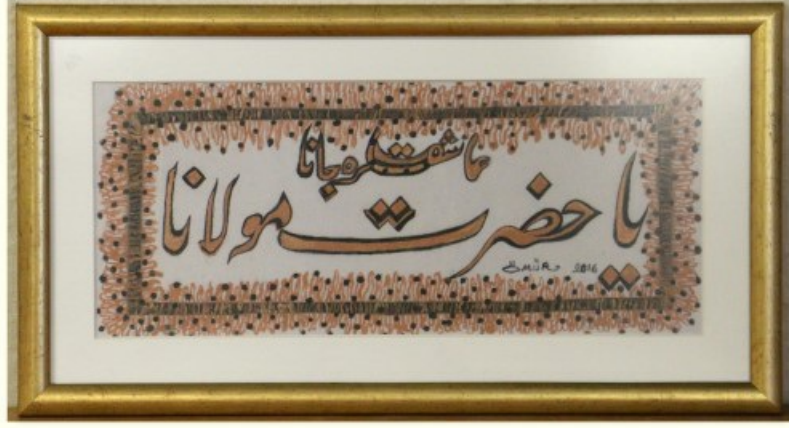 عاشقلره جانا
يا حضرت مولانا
2016